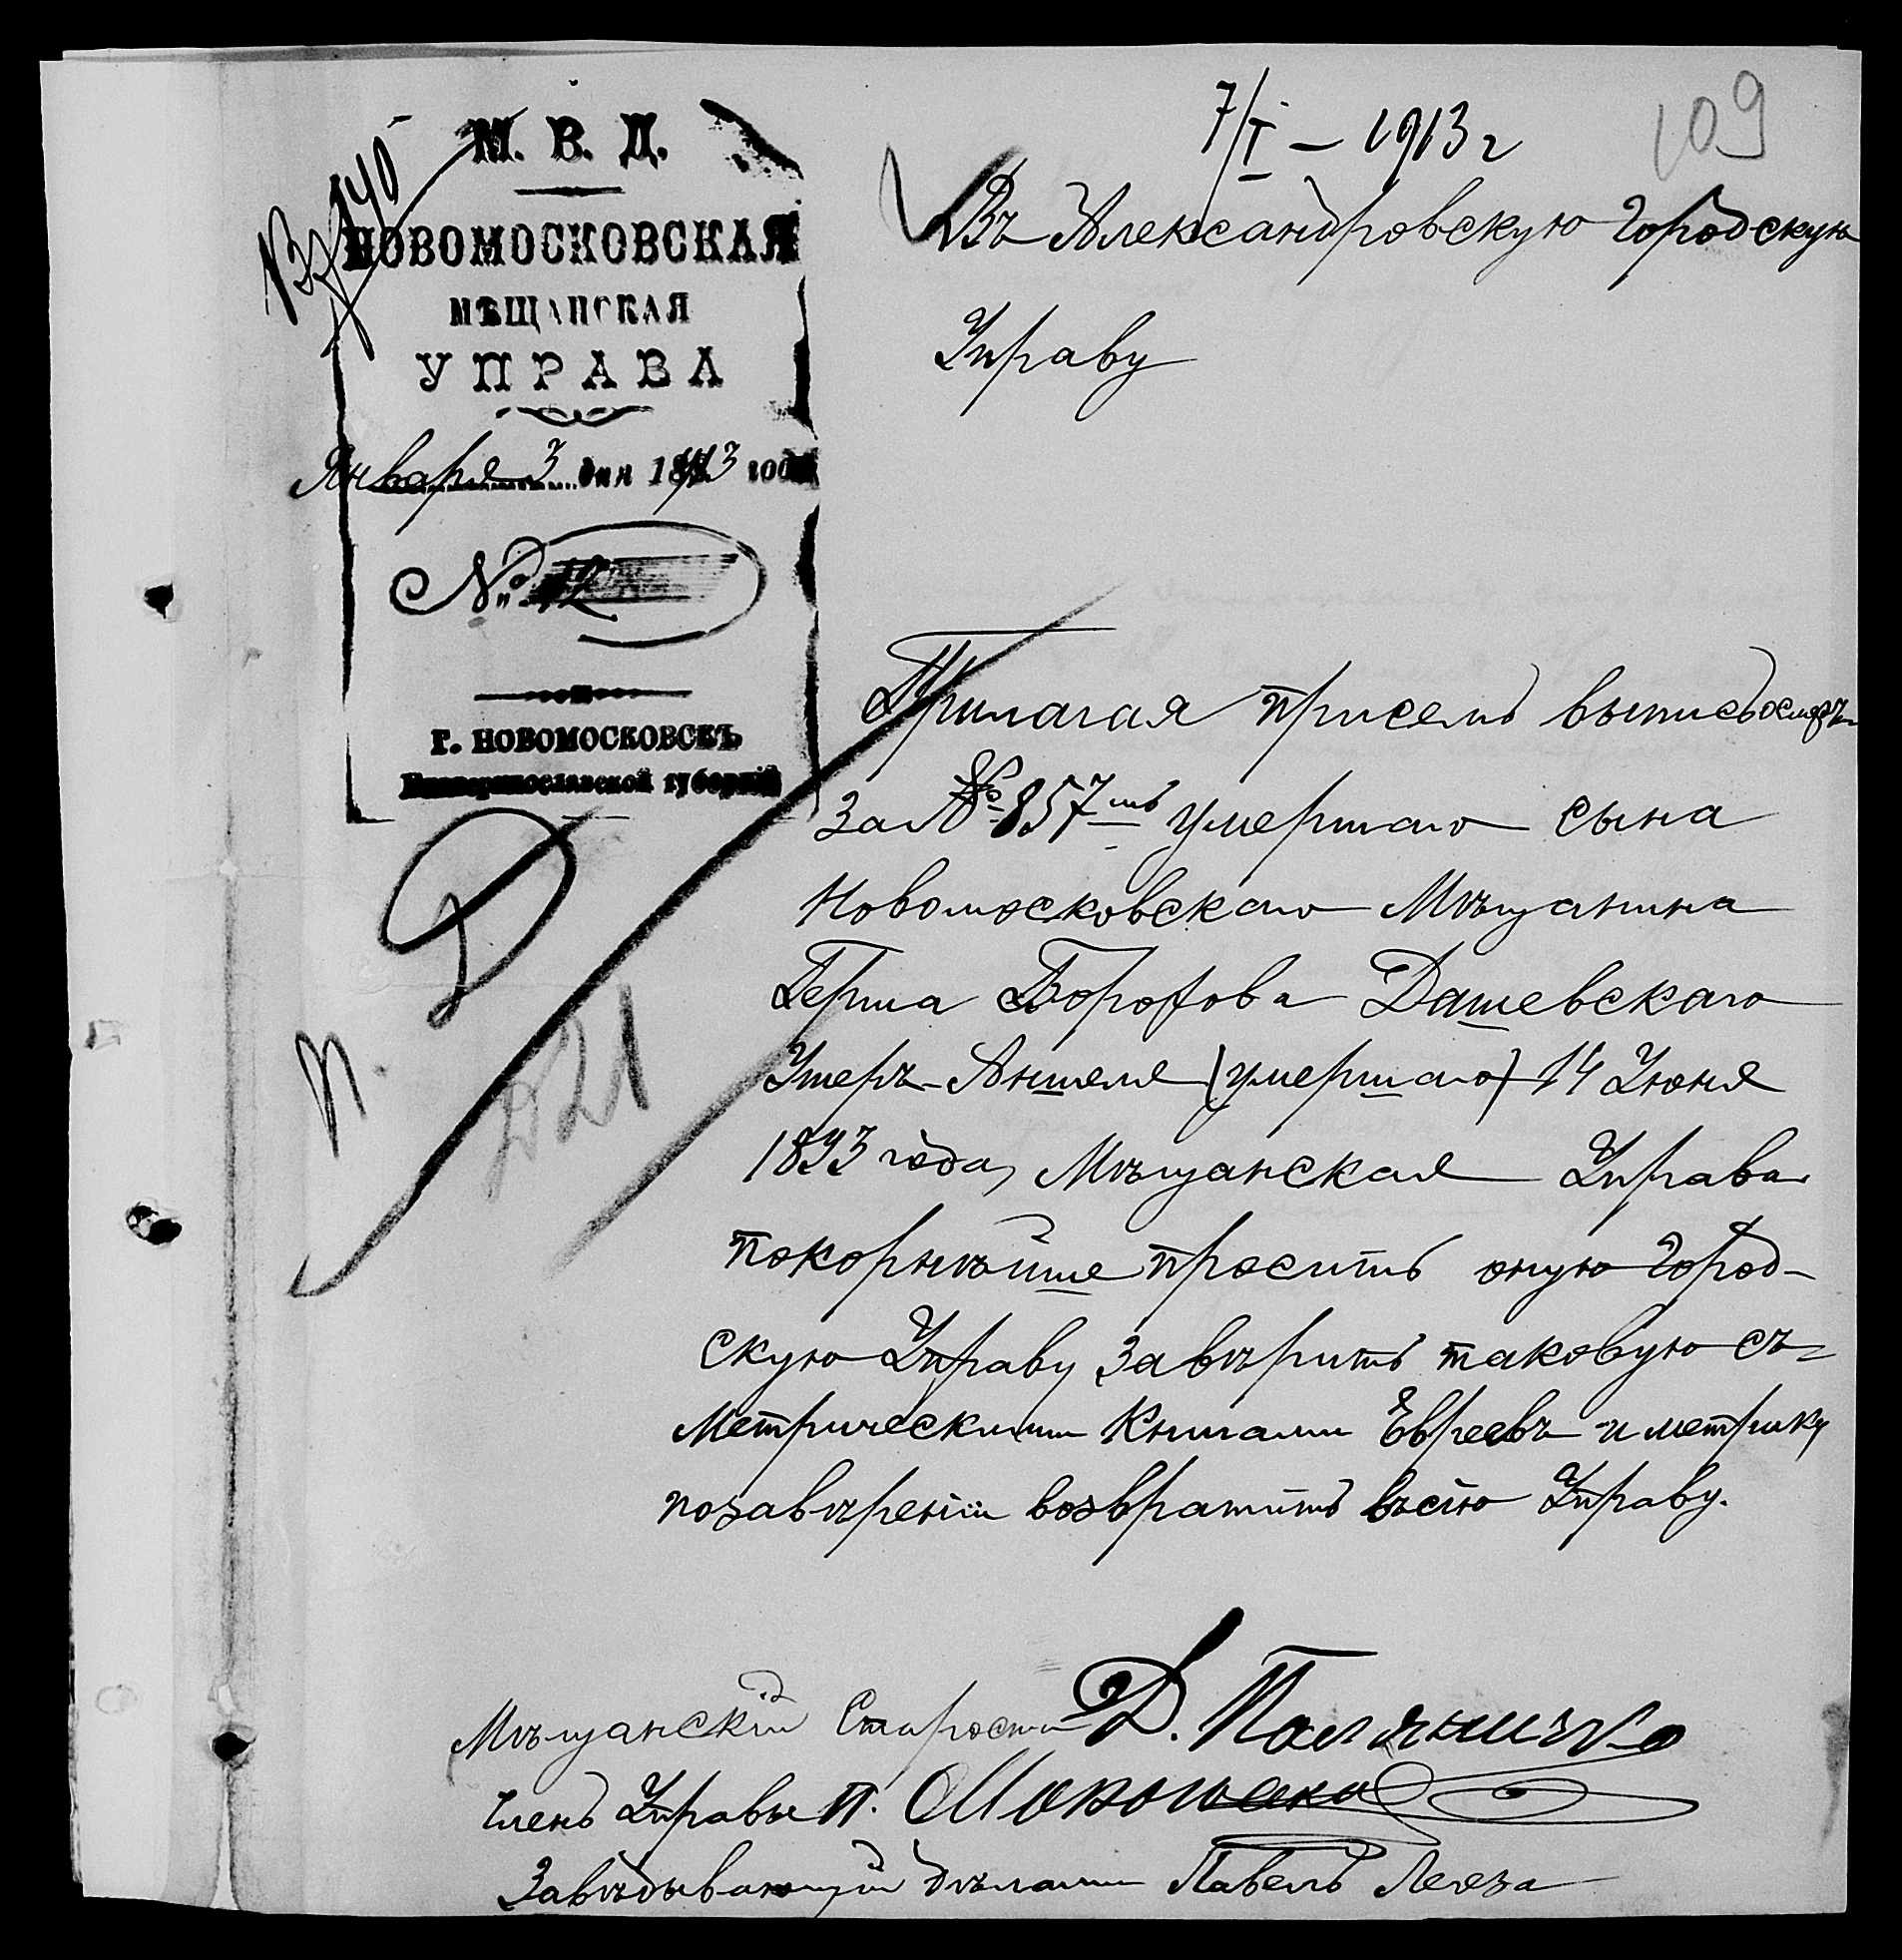 7/I – 1913 г
109
М. В. Д.
НОВОМОСКОВСКАЯ
МѢЩАНСКАЯ
УПРАВА
Января 3 дня 1913 года
№ 12
Г. НОВОМОСКОВСКЪ
Екатеринославской губерніи
Въ Александровскую Городскую
Управу
Прилагая присемъ выпись
за № 857 умершаго сына
Новомосковскаго Мѣщанина
Герша Дашевскаго
Аншеля (умершаго) 14 Іюня
1893 года, Мѣщанская Управа
покорнѣйше проситъ оную Город-
скую Управу завѣрить таковую съ
Метрическими Книгами Евреевъ и метрику
позавѣреніи возвратить въсію Управу.
Мѣщанскій Староста Д.
Членъ Управы П.
Завѣдывающій дѣлами Павелъ
Д
П.
Д21